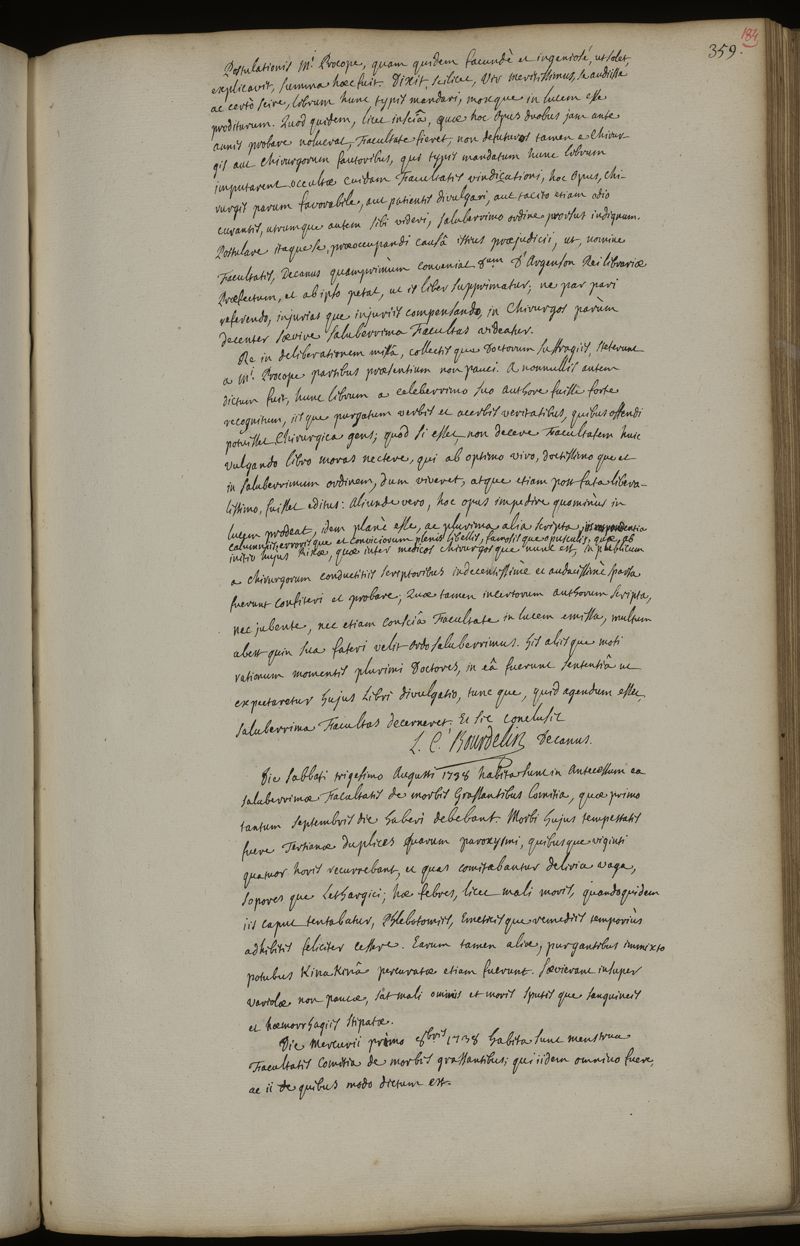 184
359.
Postulationis Mi Procope, quam quidem facundè et ingeniosè, ut solet,
explicavit, summa hæc fuit. Dixit, scilicet, Vir meritissimus, se audisse
ac certò scire, librum hunc typis mandari, moxque in lucem esse
proditurum. Quod quidem, licet insciâ, quæ hoc opus duobus jam ante
annis probare noluerat, Facultate fieret, non defuturos tamen e Chirur
gis aut Chirurgorum fautoribus, qui typis mandatum hunc librum
imputarent occultæ cuidam Facultatis vindicationi, hoc opus, Chi-
rurgis parum favorabile, aut patientis divulgari, aut tacito etiam odio
curantis, utrumque autem sibi videri, saluberrimo ordine prorsus indignum.
Postulare itaque se, præoccupandi causâ istius præjudicii, ut, nomine
Facultatis, Decanus quamprimùm conveniat Dum D'Argenson Rei librariæ
Præfectum, et ab ipso petat, ut is liber supprimatur; ne par pari
referendo, injurias que injuriis compensando, in Chirurgos parùm
decenter sævire saluberrima Facultas videatur.
Re in deliberationem missâ, collectis que Doctorum suffragiis, steterunt
a Mi Procope partibus præsentium non pauci. A nonnullis autem
dictum fuit, hunc librum a celeberrimo suo authore fuisse forte
recognitum, iisque purgatum verbis et acerbis veritatibus, quibus offendi
potuisset Chirurgica gens; quod si esset, non decere Facultatem huic
vulgando libro moras nectere, qui ab optimo viro, doctissimo que et
in saluberrimum ordinem, dum viveret, atque etiam post fata libera-
lissimo, fuisset editus: Aliunde vero, hoc opus impedire quominùs in
lucem prodeat, idem planè esse, ac plurima alia scripta
calumniis, erroris que et conviciorum plenis libellis, famosis que opusculis, quæ, ab
initio hujus rixæ, quæ inter medicos chirurgosque nunc est, in publicum
a chirurgorum conductitiis scriptoribus indecentissimè et audacissimè sparsa
fuerunt confiteri et probare; Quæ tamen incertorum authorum scripta,
nec jubente, nec etiam consciâ Facultate in lucem emissa, multum
abest quin sua fateri velit ordo saluberrimus. His aliisque moti
rationum momentis plurimi Doctores, in eâ fuerunt sententiâ ut
expectaretur hujus Libri divulgatio, tunc que, quid agendum esset,
saluberrima Facultas decerneret. Et sic conclusit
L. C. Bourdelin Decanus.
Die Sabbati trigesimo Augusti 1738 habita sunt in Antecessum ea
saluberrimæ Facultatis de morbis Grassantibus Comitia, quæ primo
tantum septembris die haberi debebant. Morbi hujus tempestatis
fuere Tertianæ duplices quarum paroxysmi, quibusque viginti
quatuor horis recurrebant, et quas comitabantur deliria vaga,
sopores que Lethargici; hæ febres, licet mali moris, quandoquidem
iis caput tentabatur, Phlebotomiis, Emeticis que remediis temporiùs
adhibitis feliciter cessere. Earum tamen aliæ, purgantibus immixto
potubus KinaKinâ percuratæ etiam fuerunt. Sævierant insuper
variolæ non paucæ, sat mali ominis et moris sputis que sanguineis
et hæmorrhagiis stipatæ.
Die Mercurii primo 8bris 1738 habita sunt menstrua
Facultatis Comitia de morbis grassantibus, qui iidem omnino fuere,
ac ii de quibus modo dictum est.